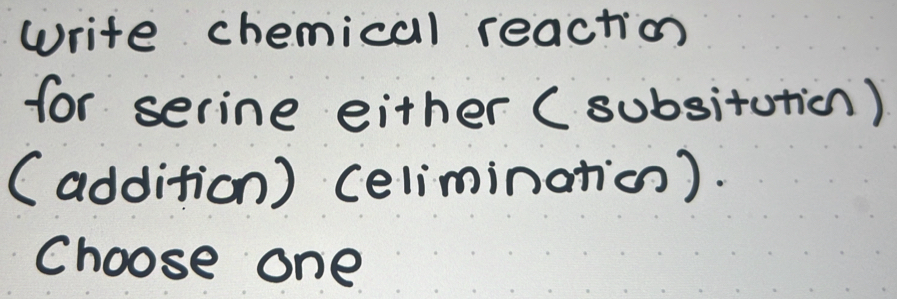 write chemical reaction
for serine either (subsitution)
(addition) (elimination).
Choose one